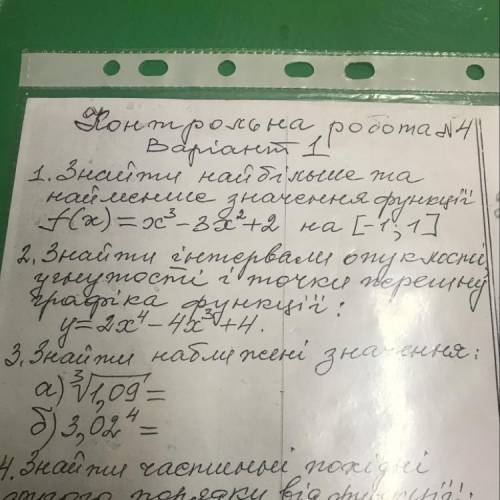 Контрольна робота №4
Варіант 1
1. Знайти найбільше та
найменше значення функції
f(x) = x³ - 3x² + 2 на [-1; 1]
2. Знайти інтервали опуклості,
угнутості і точки перегину
графіка функції:
y = 2x⁴ - 4x³ + 4.
3. Знайти наближені значення:
а) ∛1,09 =
б) 3,02⁴ =
4. Знайти частинні похідні
порядку від функції: